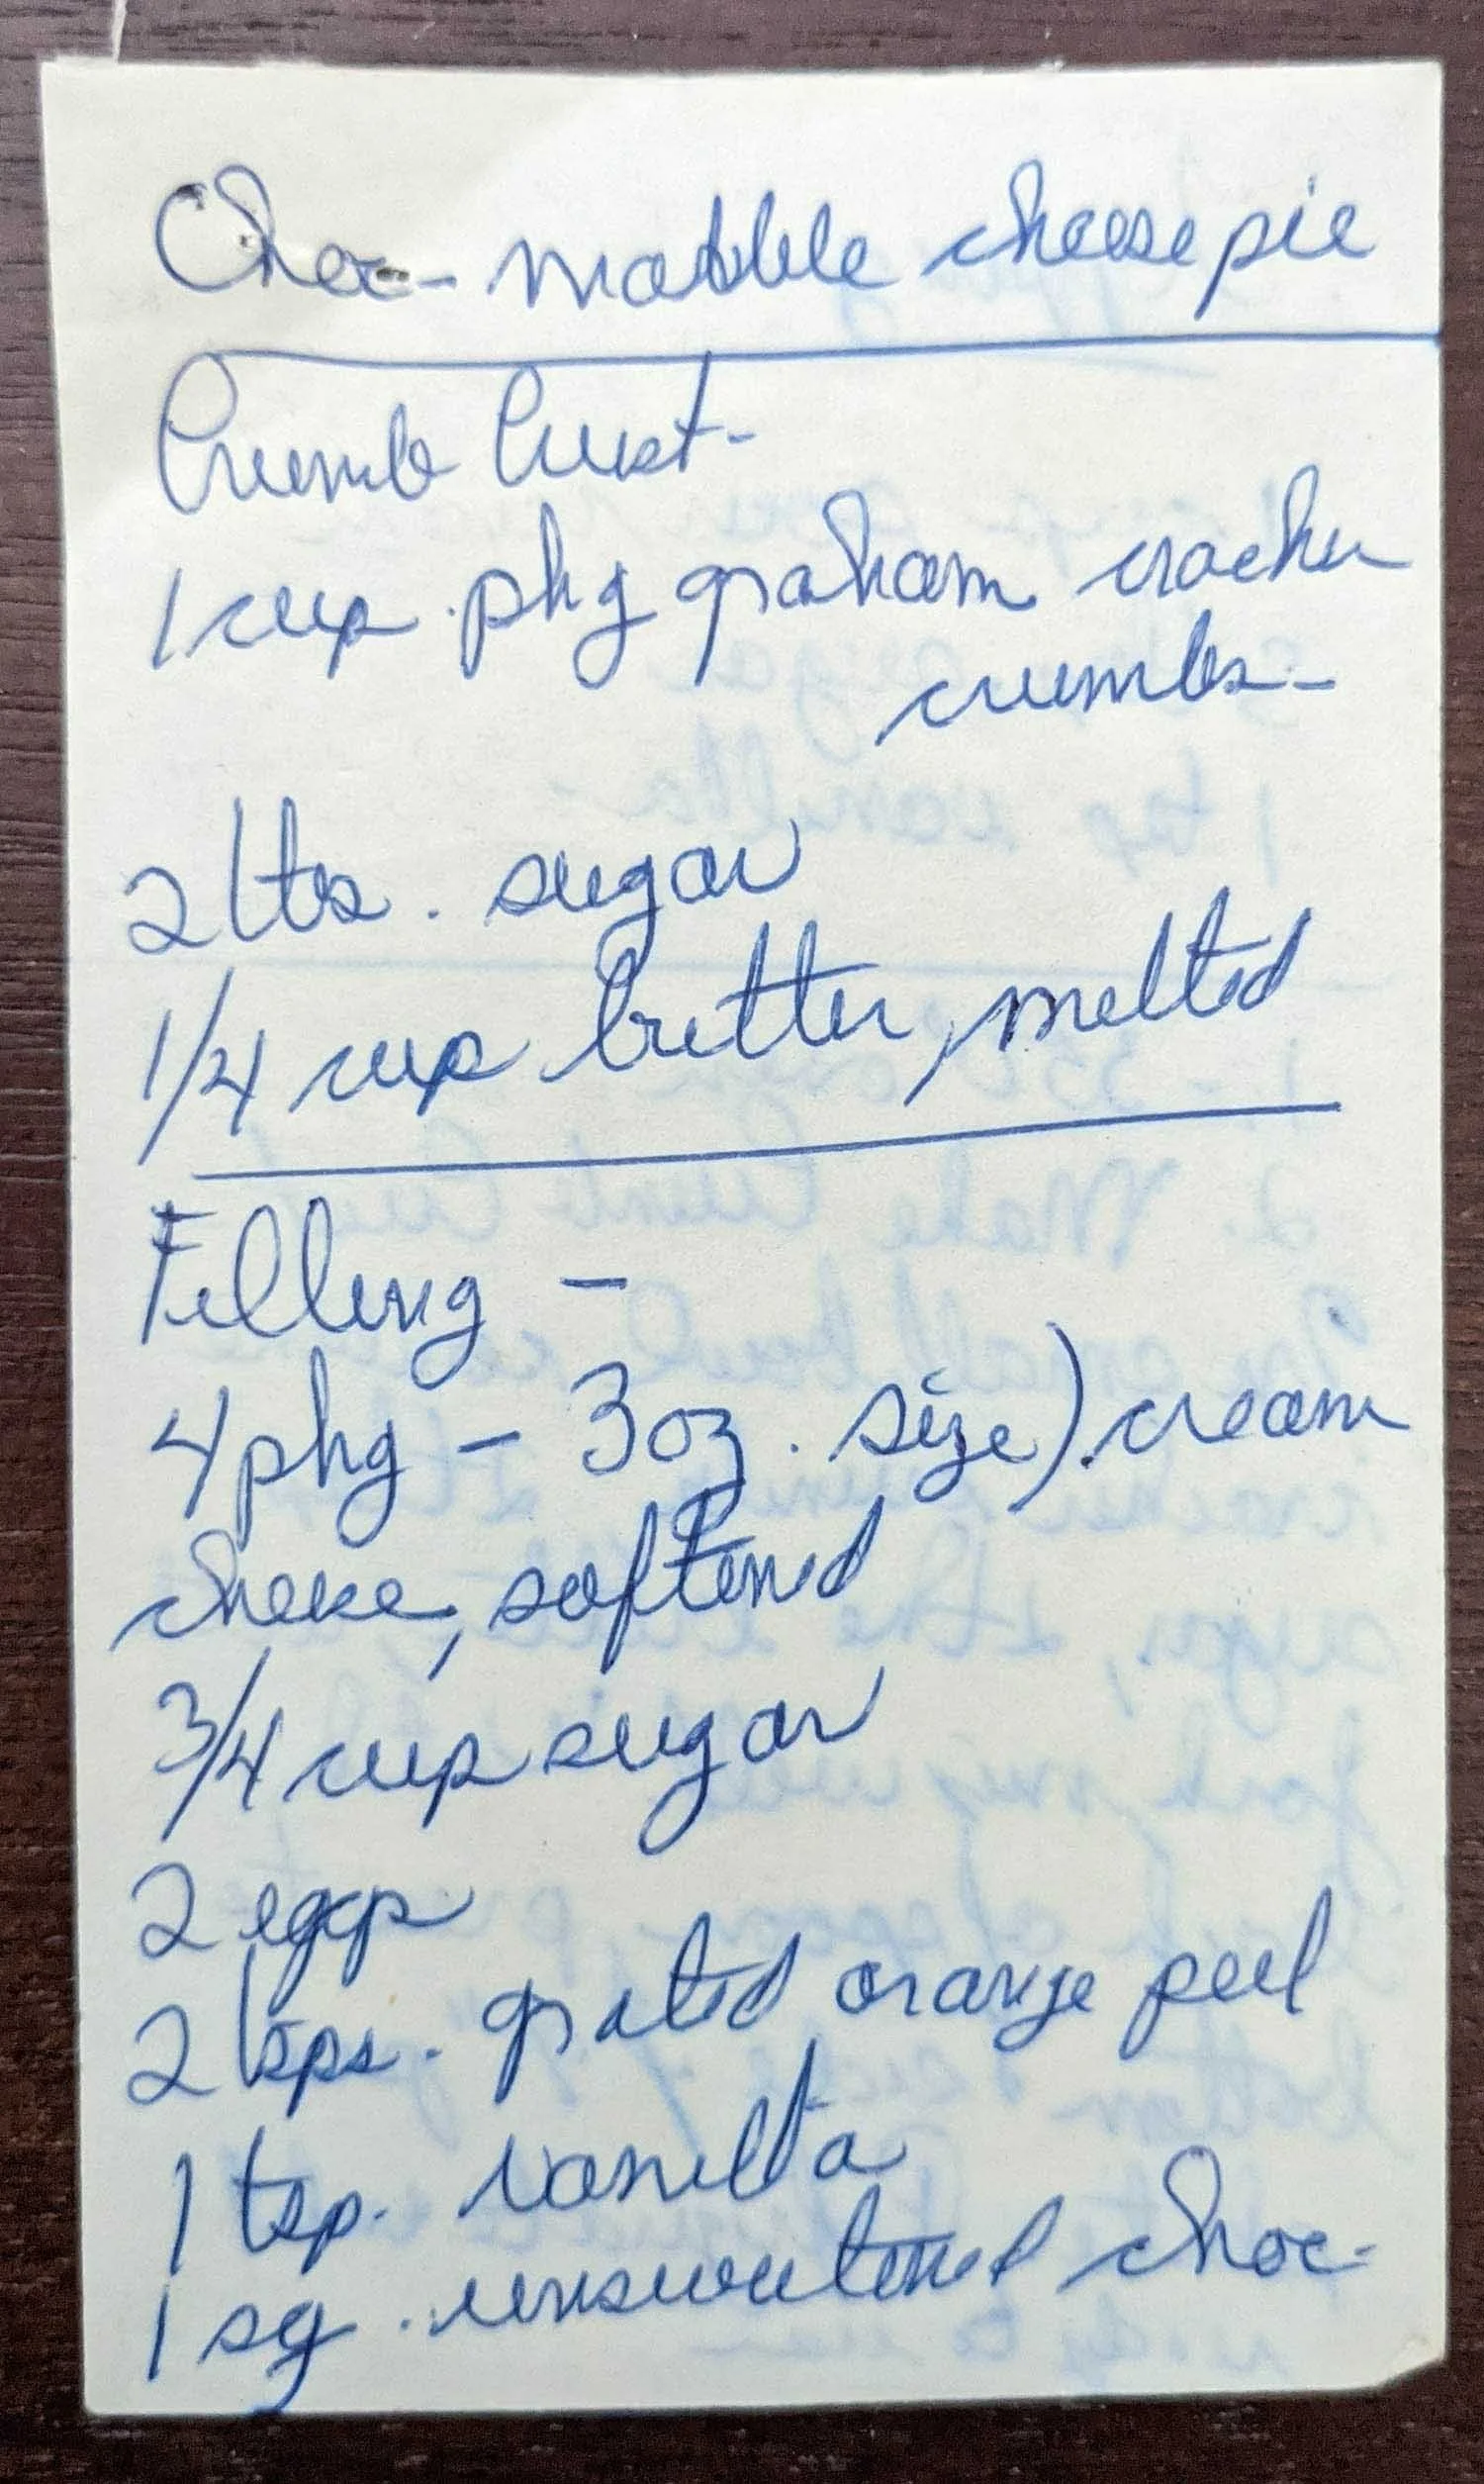 Choc- marble cheese pie
Crumb Crust-
1 cup pkg graham cracker
crumbs-
2 tbs. sugar
1/4 cup butter, melted
Filling -
4 pkg - 3 oz. size) cream
cheese, softened
3/4 cup sugar
2 eggs
2 tsps. grated orange peel
1 tsp. vanilla
1 sq. unsweetened choc-